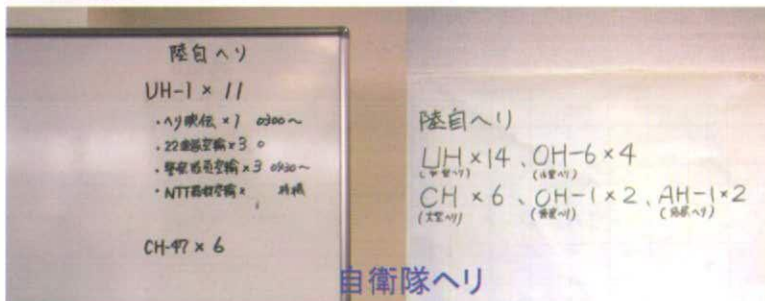 陸自ヘリ
UH-1 × 11
・ヘリ映伝 × 1 0300〜
・22連隊空輸 × 3 0
・警察職員空輸 × 3 0930〜
・NTT 空輸 × 待機
CH-47 × 6
陸自ヘリ
UH × 14、OH-6 × 4
(中型ヘリ) (小型ヘリ)
CH × 6、OH-1 × 2、AH-1 × 2
(大型ヘリ) (偵察ヘリ)
自衛隊ヘリ